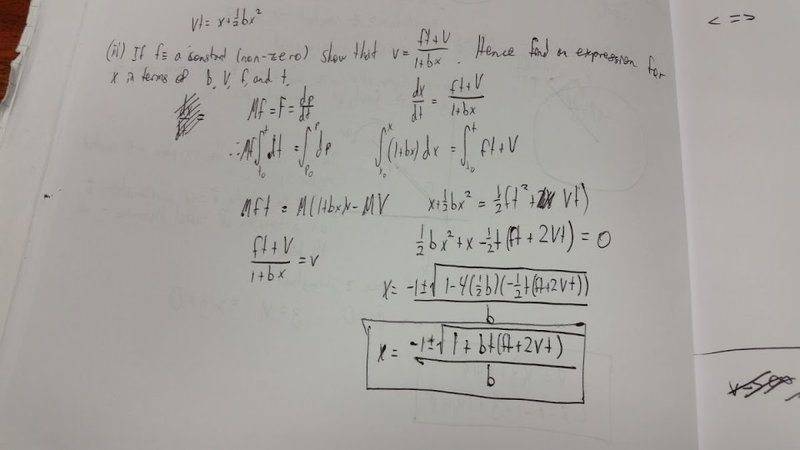 Vt = x+½bx²
<=>
(iii) If f is a constant (non-zero) show that v = (ft+V)/(1+bx). Hence find an expression for
x in terms of b, V, f, and t.
Mf = F = dp/dt
dx/dt = (ft+V)/(1+bx)
∴ Mf∫dt = ∫dp
∫(1+bx)dx = ∫ft+V
Mft = M(1+bx)v - MV
x+½bx² = ½ft² + Vt)
(ft+V)/(1+bx) = v
½bx²+x-½t(ft+2Vt) = 0
x = (-1±√(1-4(½b)(-½t(ft+2Vt))))/b
x = (-1±√(1+bt(ft+2Vt)))/b